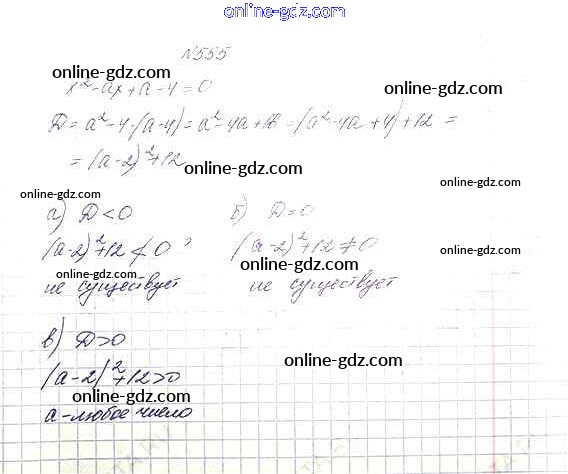 online-gdz.com
№555
online-gdz.com
x²-ax+a-4=0
online-gdz.com
D=a²-4·(a-4)=a²-4a+16=(a²-4a+4)+12=
=(a-2)²+12
online-gdz.com
online-gdz.com
online-gdz.com
а) D<0
б) D=0
online-gdz.com
(a-2)²+12≮0,
(a-2)²+12≠0
online-gdz.com
online-gdz.com
online-gdz.com
не существует
не существует
в) D>0
online-gdz.com
(a-2)²+12>0
online-gdz.com
а-любое число
online-gdz.com
online-gdz.com